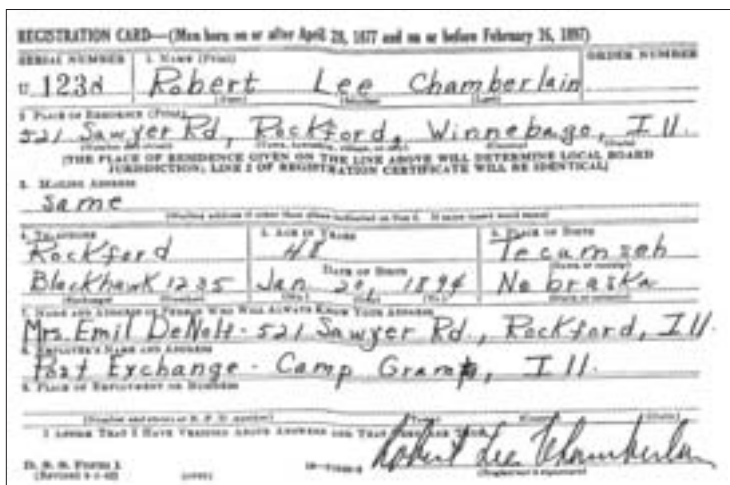 REGISTRATION CARD—(Men born on or after April 28, 1877 and on or before February 16, 1897)
SERIAL NUMBER 1. NAME (Print) ORDER NUMBER
U 123 Robert Lee Chamberlain
(First) (Middle) (Last)
2. PLACE OF RESIDENCE (Print)
521 Sawyer Rd, Rockford, Winnebago, Ill.
(Number and street) (Town, township, village, or city) (County) (State)
[THE PLACE OF RESIDENCE GIVEN ON THE LINE ABOVE WILL DETERMINE LOCAL BOARD
JURISDICTION; LINE 2 OF REGISTRATION CERTIFICATE WILL BE IDENTICAL]
3. MAILING ADDRESS
Same
(Mailing address if other than place indicated on line 2. If same insert word same)
4. TELEPHONE 5. AGE IN YEARS 6. PLACE OF BIRTH
Rockford 48 Tecamseh
DATE OF BIRTH (Town or county)
Blackhawk 1235 Jan 20, 1894 Nebraska
(Exchange) (Number) (Mo.) (Day) (Yr.) (State or country)
7. NAME AND ADDRESS OF PERSON WHO WILL ALWAYS KNOW YOUR ADDRESS
Mrs. Emil - 521 Sawyer Rd., Rockford, Ill.
8. EMPLOYER'S NAME AND ADDRESS
Post Exchange - Camp Grant, Ill.
9. PLACE OF EMPLOYMENT OR BUSINESS
(Number and street or R. F. D. number) (Town) (County) (State)
I AFFIRM THAT I HAVE VERIFIED ABOVE ANSWERS AND THAT THEY ARE TRUE.
D. S. S. Form 1
(Revised) Robert Lee Chamberlain
(Registrant's signature)